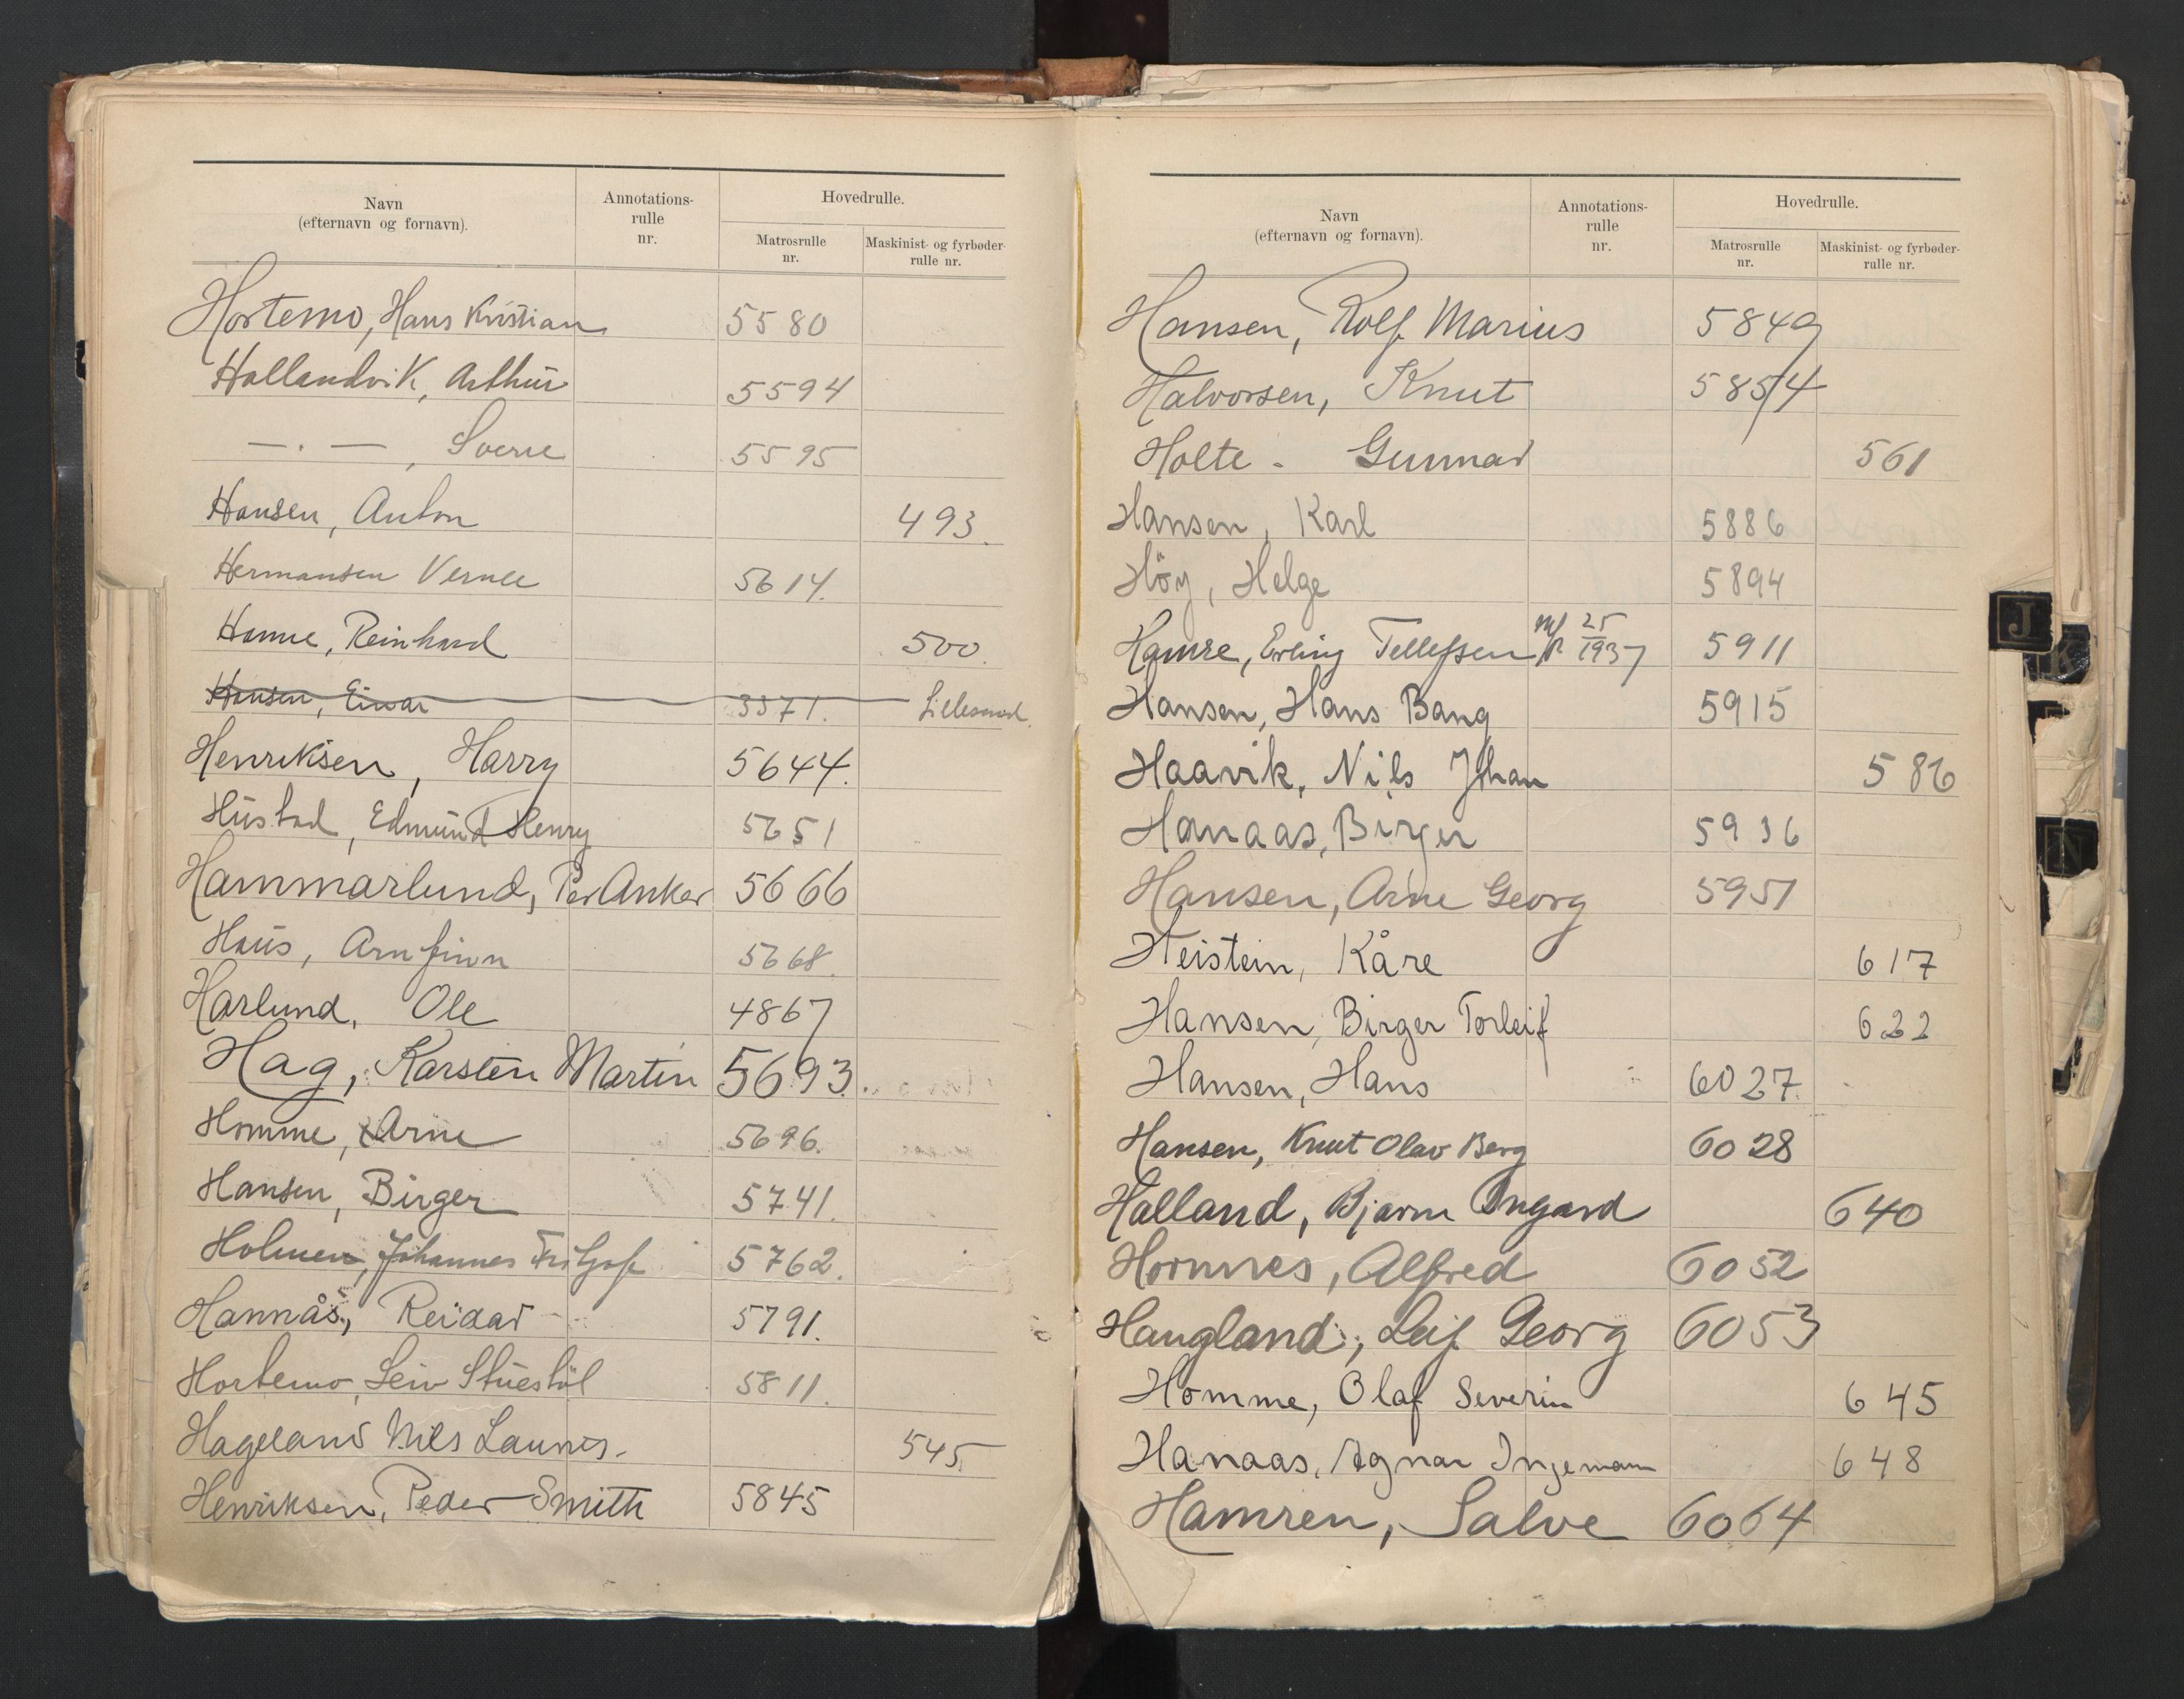 Navn
(efternavn og fornavn).
Annotations-
rulle
nr.
Hovedrulle.
Matrosrulle
nr.
Maskinist- og fyrbøder-
rulle nr.
Hortemo, Hans Kristian 5580
Hallandvik, Arthur 5594
— . — , Sverre 5595
Hansen, Anton 493.
Hermansen Verner 5614.
Hanne, Reinhard 500.
Hansen, Einar 3371. Lillesand.
Henriksen, Harry 5644.
Hustad, Edmund Henry 5651
Hammarlund, Per Anker 5666
Haus, Arnfinn 5668.
Harlund, Ole 4867
Hag, Karsten Martin 5693.
Homme, Arne 5696.
Hansen, Birger 5741.
Holmen, Johannes Fritjof 5762.
Hannås, Reidar 5791.
Hortemo, Leiv Stuestøl 5811.
Hageland Nils Launes. 545.
Henriksen, Peder Smith 5845
Navn
(efternavn og fornavn).
Annotations-
rulle
nr.
Hovedrulle.
Matrosrulle
nr.
Maskinist- og fyrbøder-
rulle nr.
Hansen, Rolf Marius 5849
Halvorsen, Knut 5854
Holte - Gunnar 561
Hansen, Karl 5886
Höy, Helge 5894
Hamre, Erling Tellefsen 25/1937 5911
Hansen, Hans Bang 5915
Haavik, Nils Johan 586
Hanaas, Birger 5936
Hansen, Arne Georg 5951
Heistein, Kåre 617
Hansen, Birger Torleif 622
Hansen, Hans 6027.
Hansen, Knut Olav Berg 6028
Halland, Bjarne Ingard 640
Hornnes, Alfred 6052
Haugland, Leif Georg 6053
Homme, Olaf Severin 645
Hanaas, Agnar Ingemann 648
Hamren, Salve 6064
J
K
N